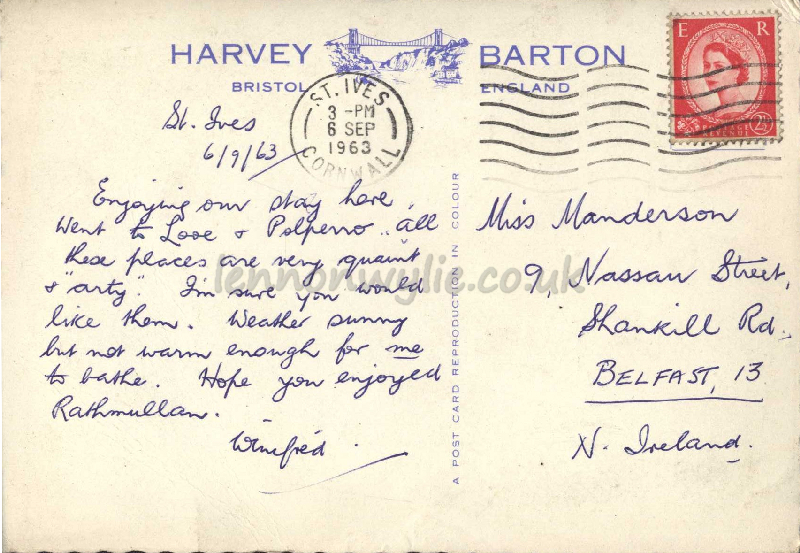 HARVEY BARTON
BRISTOL ENGLAND
ST. IVES
3 - PM
6 SEP
1963
CORNWALL
E R
POSTAGE
REVENUE
St. Ives
6/9/63
Enjoying our stay here.
Went to Looe & Polperro. all
these places are very quaint
& "arty". I'm sure you would
like them. Weather sunny
but not warm enough for me
to bathe. Hope you enjoyed
Rathmullan.
Winifred
A POST CARD REPRODUCTION IN COLOUR
Miss Manderson
9, Nassau Street,
Shankill Rd.,
BELFAST, 13
N. Ireland.
lennonwylie.co.uk